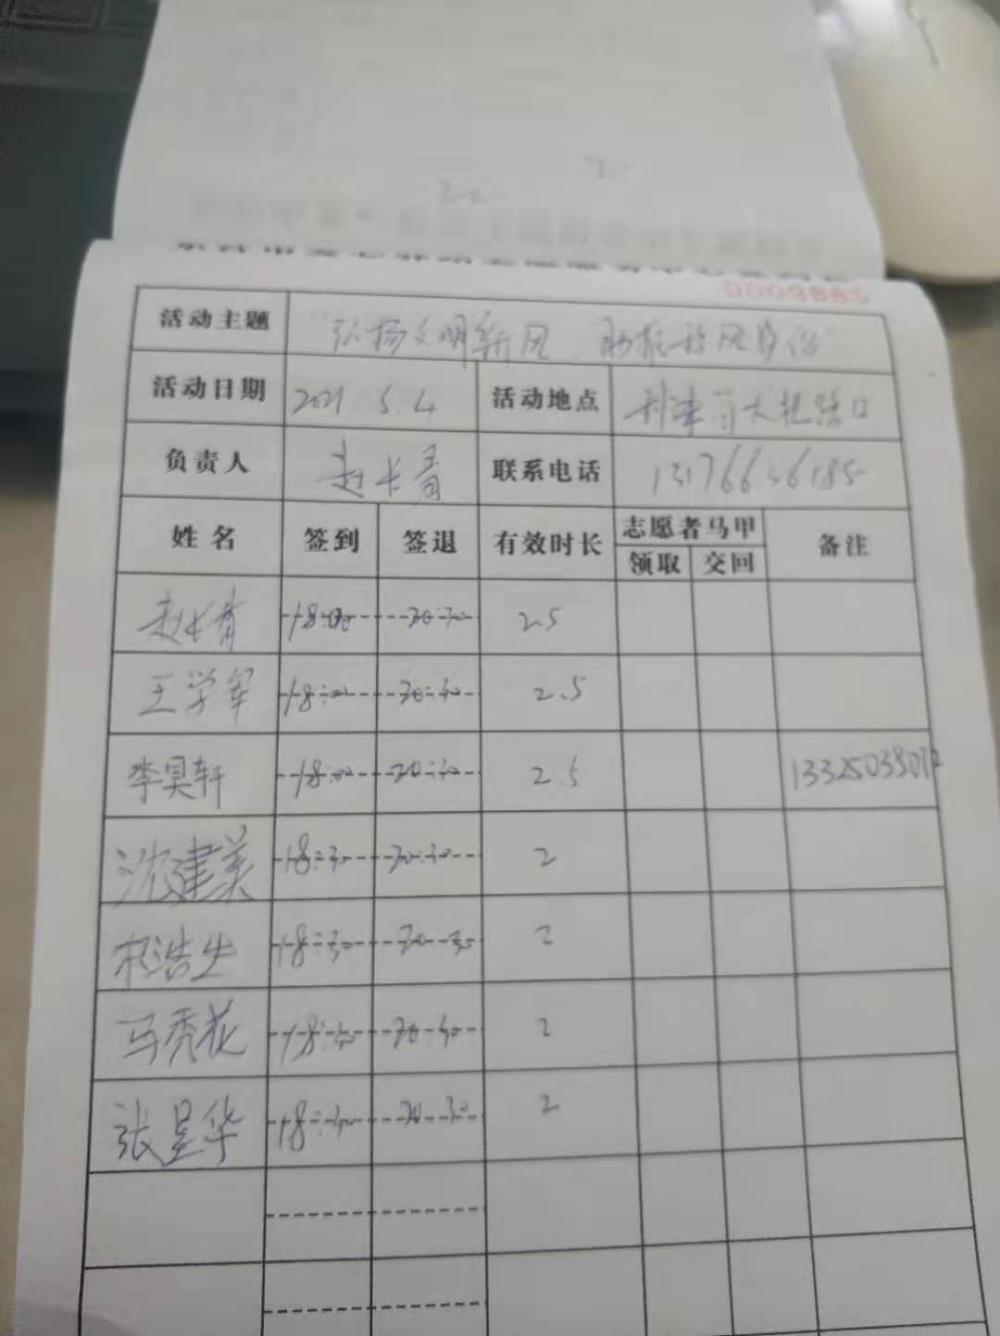 0009885
活动主题 弘扬文明新风
活动日期 2021.5.4 活动地点 路口
负责人 赵长青 联系电话 13176636185
姓名 签到 签退 有效时长 志愿者马甲 备注
领取 交回
赵长青 18:00 20:30 2.5
王学军 18:00 20:30 2.5
李昊轩 18:00 20:30 2.5
沈建美 18:30 20:30 2
18:30 20:30 2
马秀花 18:30 20:30 2
张星华 18:30 20:30 2